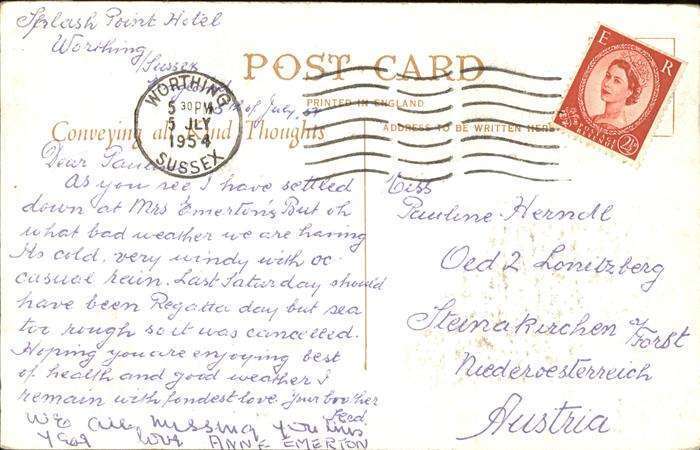 Splash Point Hotel
Worthing
Sussex
of July, 54
POST CARD
PRINTED IN ENGLAND
Conveying all Kind Thoughts
ADDRESS TO BE WRITTEN HERE
WORTHING
5 30 PM
5 JLY
1954
SUSSEX
E R
POSTAGE REVENUE
2½
Dear
As you see I have settled
down at Mrs Emerton's. But oh
what bad weather we are having
Its cold, very windy with oc
casual rain. Last Saturday should
have been Regatta day but sea
too rough so it was cancelled.
Hoping you are enjoying best
of health and good weather I
remain with fondest love. Your brother
Ferd.
we all missing you this
year love ANNE EMERTON
Miss
Pauline Herndl
Oed 2 Lonitzberg
Steinakirchen a/Forst
Niederoesterreich
Austria